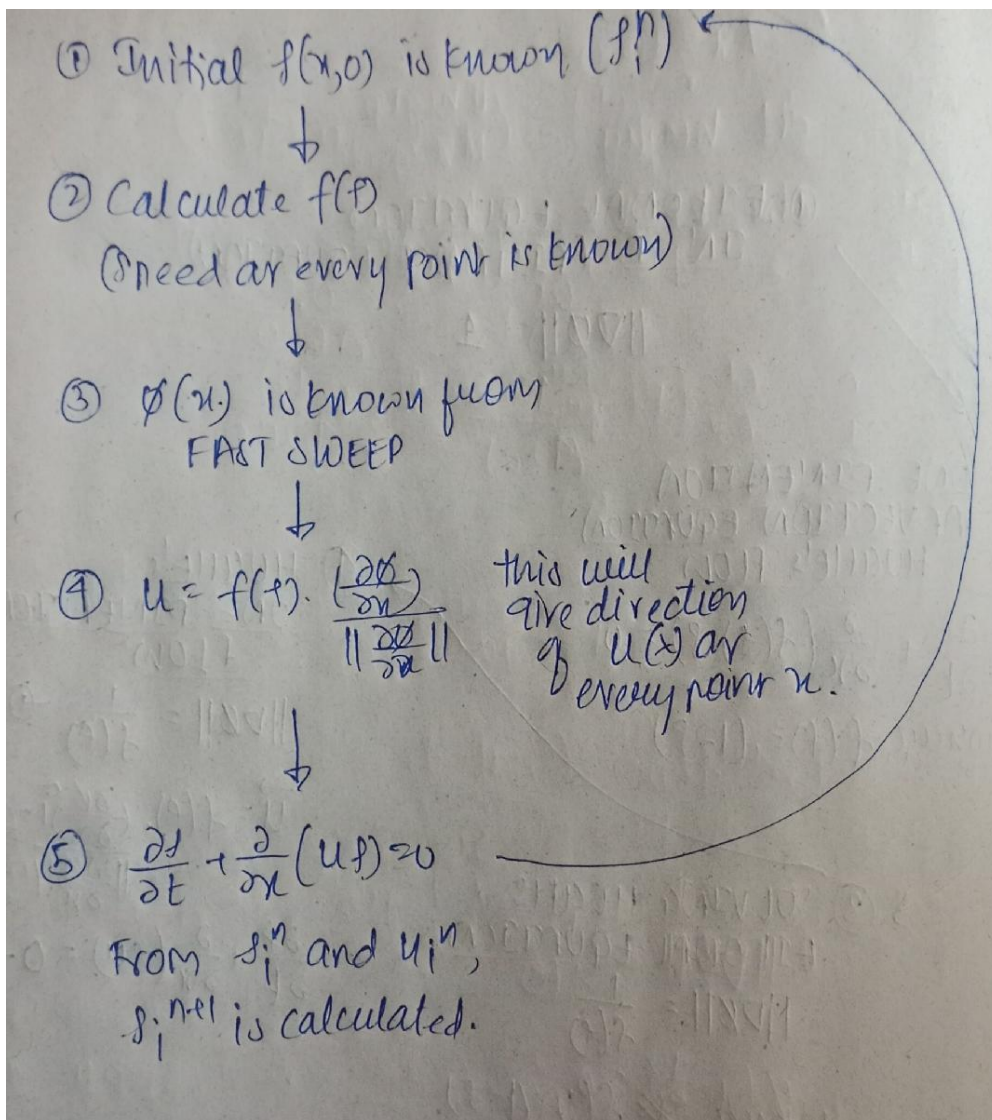 ① Initial ρ(x,0) is known (ρᵢⁿ)
↓
② Calculate f(ρ)
(Speed at every point is known)
↓
③ φ(x) is known from
FAST SWEEP
↓
④ u = f(ρ). (∂φ/∂x) / ||∂φ/∂x||
this will
give direction
of u(x) at
every point x.
↓
⑤ ∂ρ/∂t + ∂/∂x (uρ) = 0
From ρᵢⁿ and uᵢⁿ,
ρᵢⁿ⁺¹ is calculated.